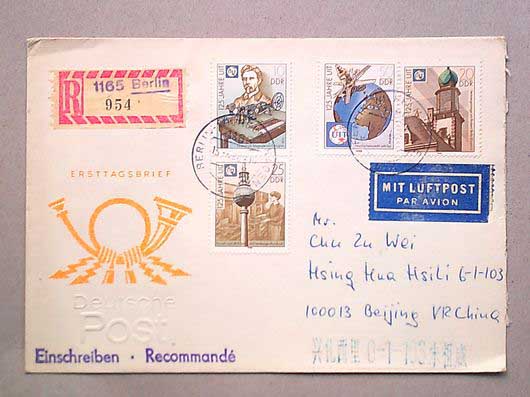 R 1165 Berlin
954
ERSTTAGSBRIEF
Deutsche
Post
Einschreiben · Recommandé
125 JAHRE UIT
10
DDR
125 JAHRE UIT
DDR
UIT
125 JAHRE UIT
20
DDR
125 JAHRE UIT
25
DDR
BERLIN
MIT LUFTPOST
PAR AVION
Mr.
Chu Zu Wei
Hsing Hua Hsili 6-1-103
100013 Beijing VR China
兴化西里 6-1-103